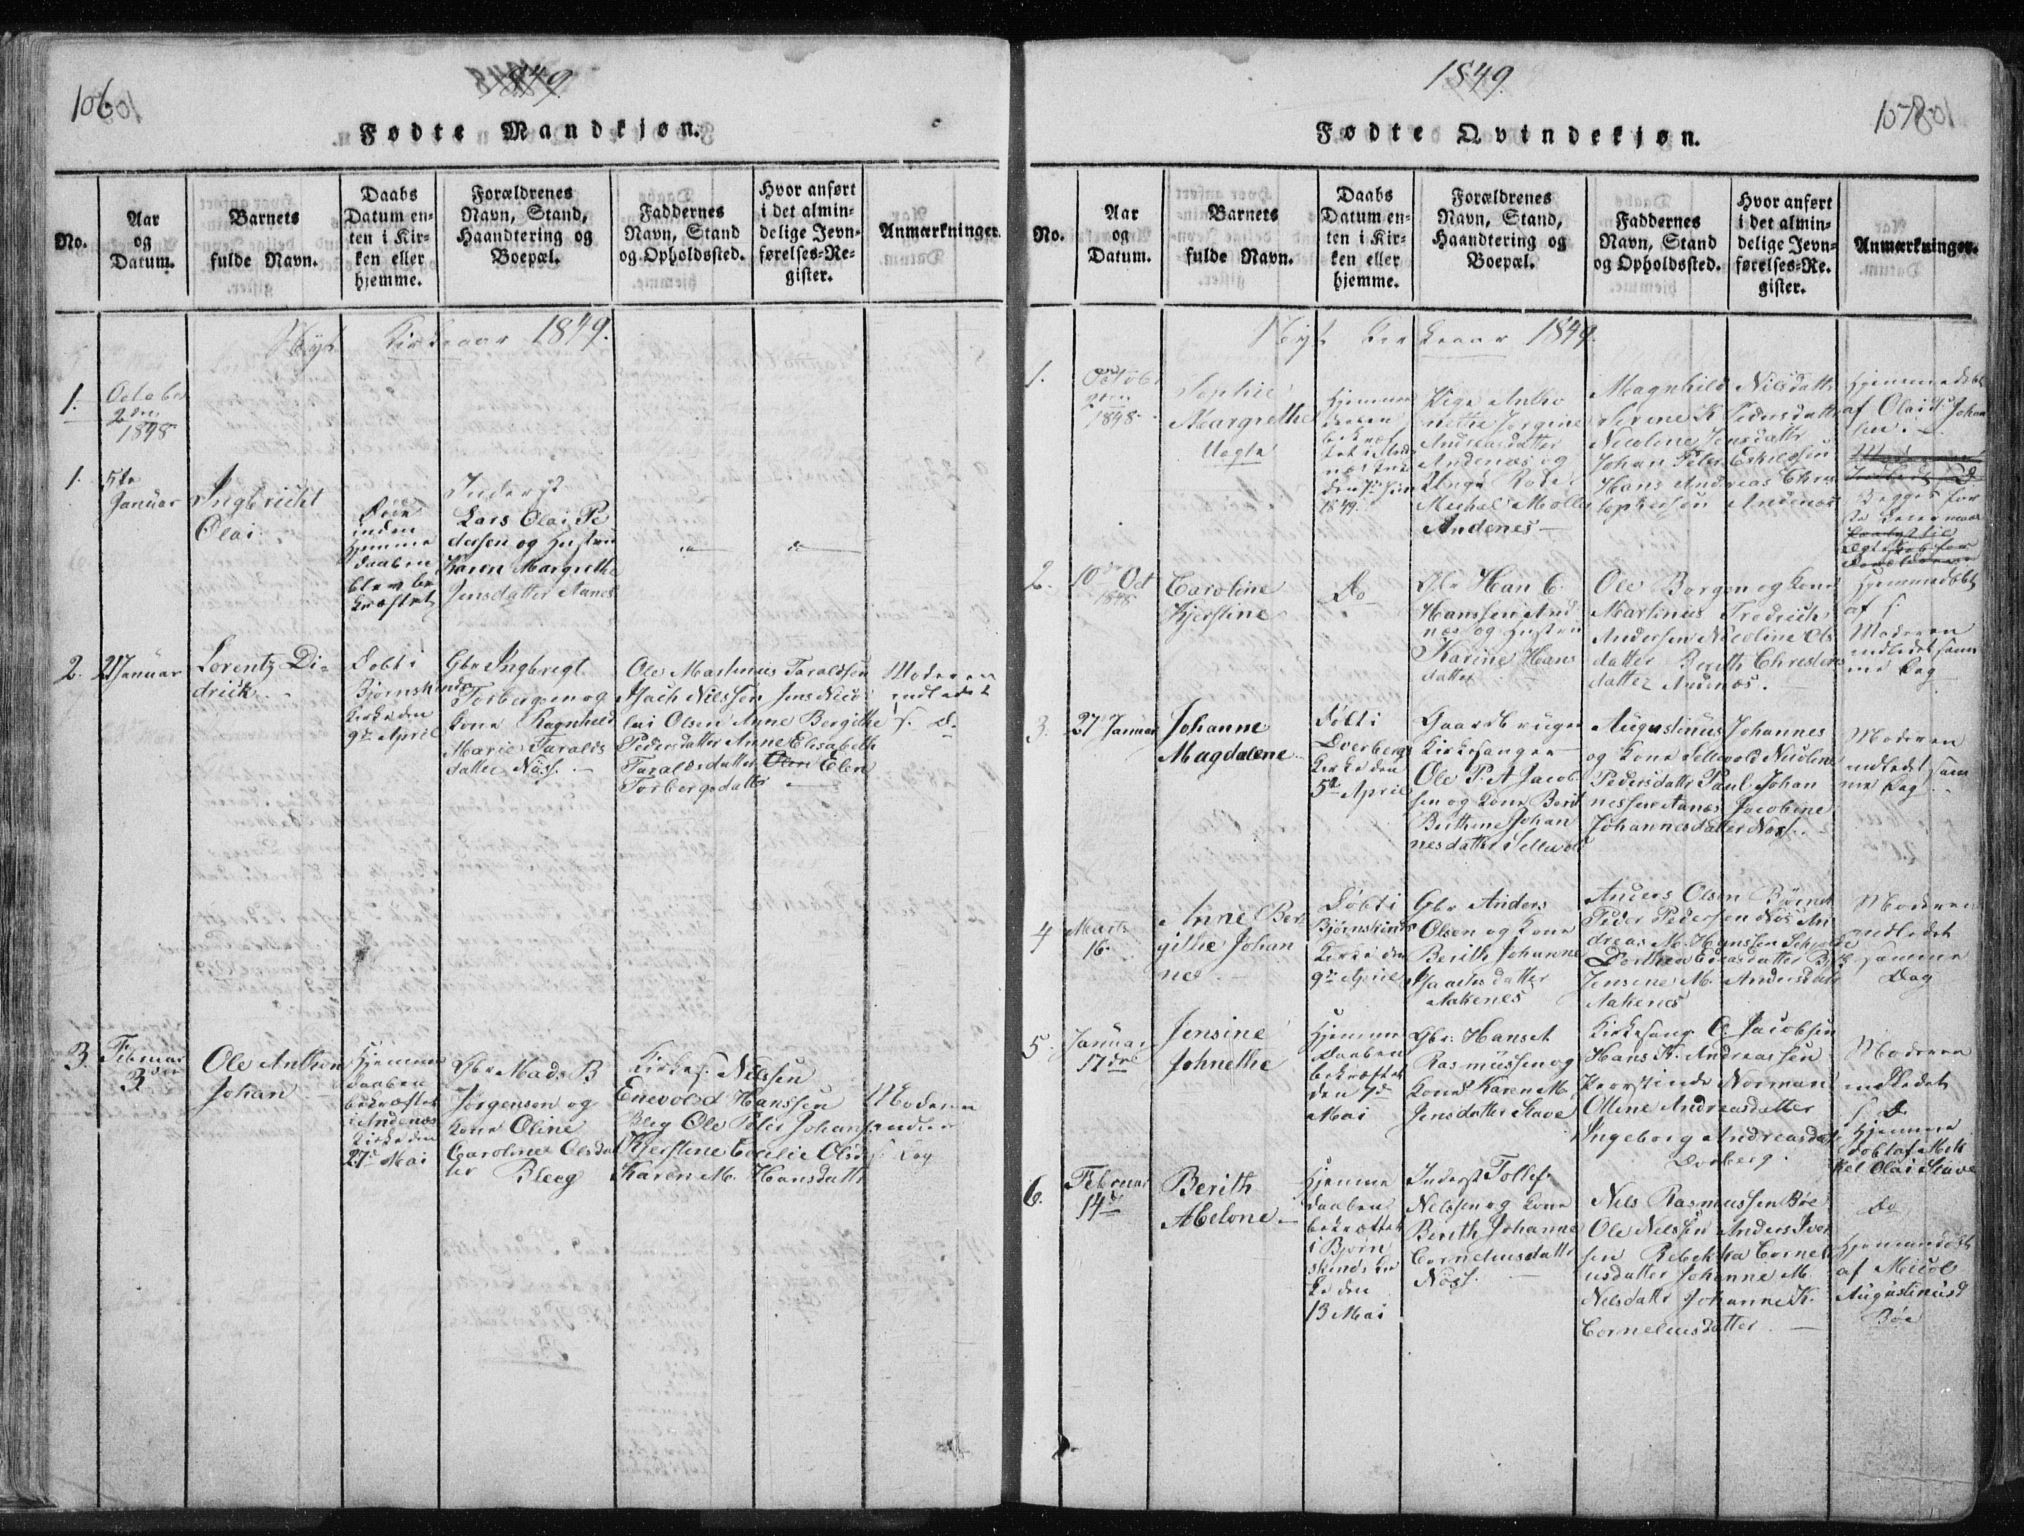 106
1849.
Fødte Mandkjøn.
No.
Aar
og
Datum.
Barnets
fulde Navn.
Daabs
Datum en-
ten i Kir-
ken eller
hjemme.
Forældrenes
Navn, Stand,
Haandtering og
Boepæl.
Faddernes
Navn, Stand
og Opholdssted.
Hvor anført
i det almin-
delige Jevn-
førelses-Re-
gister.
Anmærkninger.
Nyt Kirkeaar 1849.
1.
October
2den
1848
1.
5te
Januar
Ingbricht
Olai
inden
Hjemme
daaben
blev be
kræftet
Inderst
Lars Olai Pe
dersen og Hustru
Karen Margrethe
Jensdatter Aanes
2.
2 Januar
Lorentz Di-
drich
Døbt i
Bjørnskinds
Kirke den
9de April
Gbr Ingbrigt
Torbergsen og
Kone Ragnhild
Marie Taralds
datter Nøss. —
Ole Martinus Taraldsen
Isach Nilssen Jens Nico
lai Olsen Anne Bergithe
Pedersdatter Anne Elisabeth
Taraldsdatter Elen
Torbergsdatter
Moderen
indledet
s. D.
3.
Februar
3die
Ole Anthon
Johan
Hjemme
daaben
bekræftet
i Andenæs
Kirke den
27de Mai
Gbr Mads B
Jørgensen og
Kone Oline
Caroline Olsdat
ter Bleeg
Kirkes. Nilssen
Enevold Hanssen
Bleg Ole Peter Johans
Kjerstine Cecilie Olsd
Karen M. Hansdattr
Moderen
s. Dag
1849.
107
Fødte Qvindekjøn.
No.
Aar
og
Datum.
Barnets
fulde Navn.
Daabs
Datum en-
ten i Kir-
ken eller
hjemme.
Forældrenes
Navn, Stand,
Haandtering og
Boepæl.
Faddernes
Navn, Stand
og Opholdssted.
Hvor anført
i det almin-
delige Jevn-
førelses-Re-
gister.
Anmærkninger.
Nyt Kirkeaar 1849.
1.
October
1848
Sophie
Margrethe
Uegte
Hjemme
daaben
bekræf
tet i And
næs Kirke
1849.
Pige Antho
nethe Jørgine
Andreasdatter
Andenæs og
Unge Robe
Michal Møller
Andenes —
Magnhild Nilsdattr
Serine K Pedersdattr
Nicoline Jensdattr
Johan Peter Eskildsen
Hans Andreas Chri
stophersen Andenæs
Hjemmedøbt
af Olai Johan
sen.
Begges for
ste Leiermaal
2.
10de Oct
1848
Caroline
Kjerstine
Do
Gbr Han C.
Hanssen And
næs og Hustru
Karine Hans
datter
Ole Borgen og Kone
Martinus Fredrich
Andersen Nicoline Ols
datter Berith Christens
datter Andnæs.
Hjemmedøbt
af s.
Moderen
indledet sam
me Dag
3.
27 Januar
Johanne
Magdalene
Døbt i
Dverberg
Kirke den
5te April
Gaardbruger
Kirkesanger
Ole P. A Jacob
sen og Kone Berit
Berthine Johan
nesdatter Sellevold
Augustinus Johannes
og Kone Sellevold Nicoline
Pedersdattr Paul Johan
nessen Aanæs Jacobine
Johannesdatter Nøss.
Moderen
indledet sam
me Dag
4
Marts
16.
Anne Ber
githe Johan
ne
Døbt i
Bjørnskinds
Kirke den
9de April
Gbr Anders
Olsen og Kone
Berith Johanne
Isachsdatter
Aakenes
Anders Olsen Børnet
Peder Pedersen Nøs An
dreas M. Hanssen
Dorthea
Jensine M. Andersdatr
Aakenes
Moderen
indledet
samme
Dag
5
Januar
17de
Jensine
Johnethe
Hjemme
daaben
bekræftet
den 7de
Mai
Gbr. Hans
Rasmussen og
Kone Karen M.
Jensdatter Stave
Kirkesang. O. Jacobsen
Hans K. Andreassen
Kierstine Norman
Olline Andreasdatter
Ingeborg Andreasdattr
Dverberg.
Moderen
indledet
s. D.
Hjemme
døbt af Mik
kel Olai Stave
6.
Februar
14de
Berith
Abelone —
Hjemme
daaben
bekræftet
i Bjørn
skinds Kir
ke den
13 Mai
Inderst Tollef
Nilssen og Kone
Berith Johanne
Corneliusdattr
Nøss.
Nils Rasmussen Bøe
Ole Nilssen Anders Iver
sen Rebekka Corneli
usdatter Johanne M.
Nilsdattr Johanne K.
Corneliusdatter —
Do
Hjemmedøbt
af Nicol.
Augustinusd
Bøe